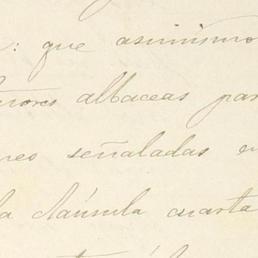 : que asimismo
ñores albaceas par
nes señaladas e
la cláusula cuarta